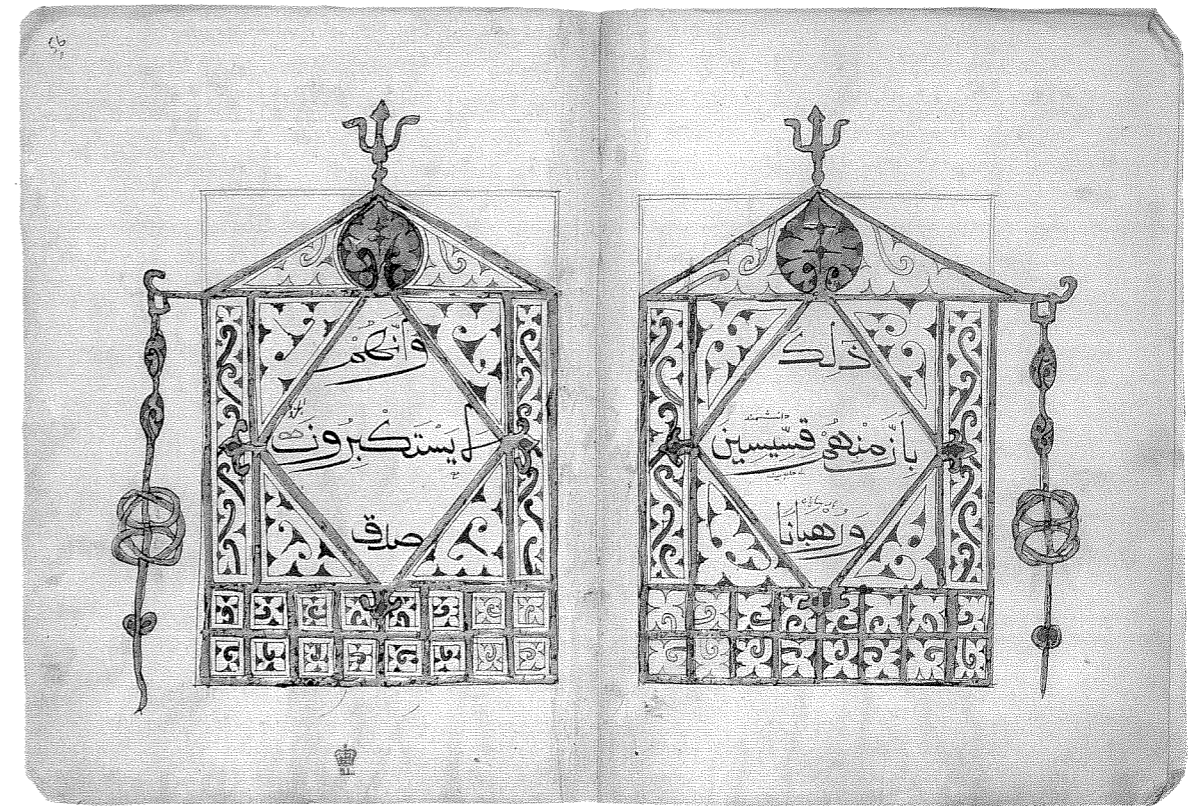 ذٰلِكَ
بِاَنَّ مِنْهُمْ قِسِّيسِينَ
وَرُهْبَانًا
وَاَنَّهُمْ
لَا يَسْتَكْبِرُونَ
صدق